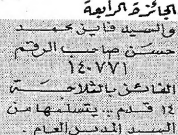 الجائزة الرابعة
والسيد فايز محمد
حسن صاحب الرقم
١٤٠٧٧١
الفائز بالثلاجة
١٤ قدم يتسلمها من
السيد المدير العام.